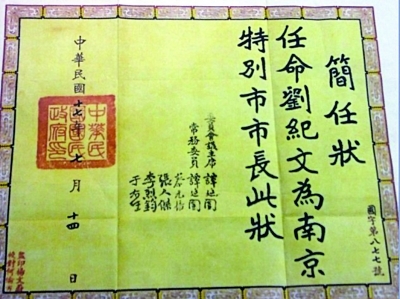 簡任狀
任命劉紀文為南京
特別市市長此狀
委員會議主席 譚延闓
常務委員 譚延闓
蔡元培
張人傑
李烈鈞
于右任
中華民國十七年七月十四日
中華民國國民政府印
國字第八七七號
監印楊文
校對何